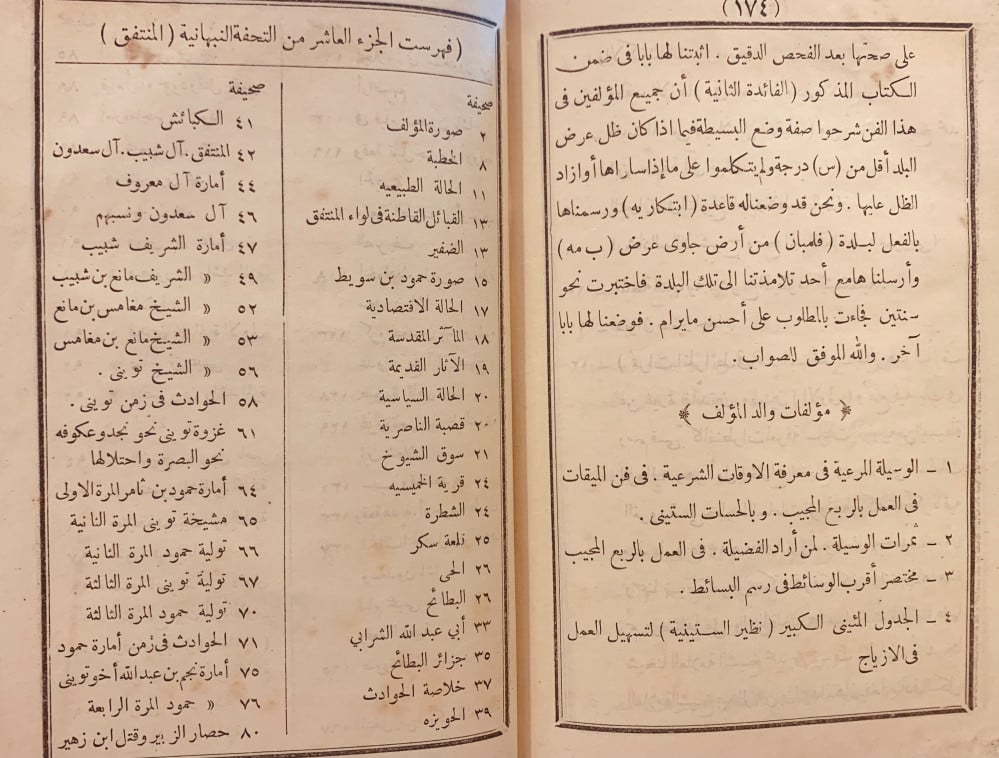 (١٧٤)
على صحتها بعد الفحص الدقيق . اثبتنا لها بابا فى ضمن
الكتاب المذكور (الفائدة الثانية) أن جميع المؤلفين فى
هذا الفن شرحوا صفة وضع البسيطة فيما اذا كان ظل عرض
البلد أقل من (س) درجة ولم يتكلموا على ما إذا ساراها أو ازاد
الظل عليها . ونحن قد وضعنا له قاعدة (ابتكاريه) ورسمناها
بالفعل لبلدة (فلمبان) من أرض جاوى عرض (ب مه)
وأرسلناها مع أحد تلامذتنا الى تلك البلدة فاختبرت نحو
سنتين فجاءت بالمطلوب على أحسن مايرام . فوضعنا لها بابا
آخر . والله الموفق للصواب .
﴿ مؤلفات والد المؤلف ﴾
١ ـ الوسيلة المرعية فى معرفة الاوقات الشرعية . فى فن الميقات
فى العمل بالربع المجيب . وبالحسات الستينى .
٢ ـ ثمرات الوسيلة . لمن أراد الفضيلة . فى العمل بالربع المجيب
٣ ـ مختصر أقرب الوسائط فى رسم البسائط .
٤ ـ الجدول المئينى الكبير (نظير الستينية) لتسهيل العمل
فى الازياج
(فهرست الجزء العاشر من التحفة النبهانية (المنتفق)
صحيفة
٢ صورة المؤلف
٨ الخطبة
١١ الحالة الطبيعيه
١٣ القبائل القاطنة فى لواء المنتفق
١٣ الضفير
١٥ صورة حمود بن سويط
١٧ الحالة الاقتصادية
١٨ المآثر المقدسة
١٩ الآثار القديمة
٢٠ الحالة السياسية
٢٠ قصبة الناصرية
٢١ سوق الشيوخ
٢٤ قرية الخميسيه
٢٤ الشطرة
٢٥ قلعة سكر
٢٦ الحى
٢٦ البطائح
٣٣ أبي عبد الله الشرابي
٣٥ جزائر البطائح
٣٧ خلاصة الحوادث
٣٩ الحويزه
صحيفة
٤١ الكبائش
٤٢ المنتفق . آل شبيب . آل سعدون
٤٤ أمارة آل معروف
٤٦ آل سعدون ونسبهم
٤٧ أمارة الشريف شبيب
٤٩ « الشريف مانع بن شبيب
٥٢ « الشيخ مغامس بن مانع
٥٣ « الشيخ مانع بن مغامس
٥٦ « الشيخ ثوينى .
٥٨ الحوادث فى زمن ثوينى .
٦١ غزوة ثوينى نحو نجد وعكوفه
نحو البصرة واحتلالها
٦٤ أمارة حمود بن ثامر المرة الاولى
٦٥ مشيخة ثوينى المرة الثانية
٦٦ تولية حمود المرة الثانية
٦٧ تولية ثوينى المرة الثالثة
٧٠ تولية حمود المرة الثالثة
٧١ الحوادث فى زمن أمارة حمود
٧٥ أمارة نجم بن عبد الله أخو ثوينى
٧٦ « حمود المرة الرابعة
٨٠ حصار الزبير وقتل ابن زهير